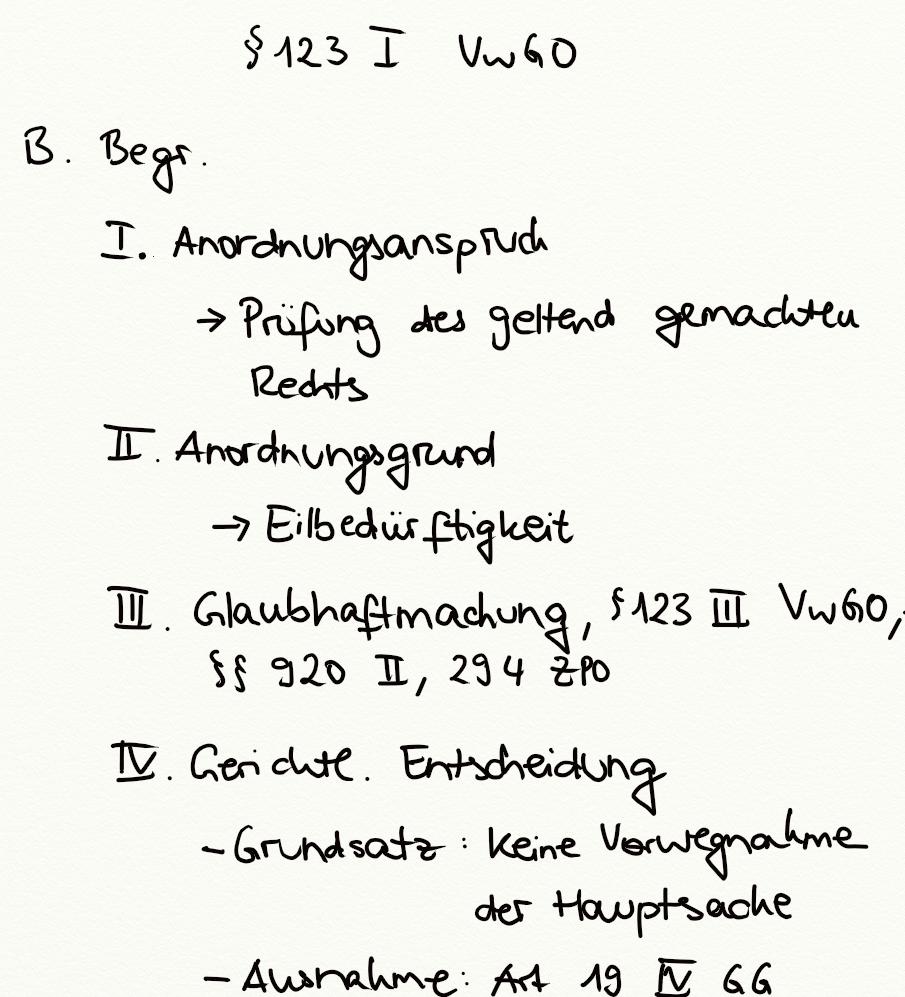 § 123 I VwGO
B. Begr.
I. Anordnungsanspruch
→ Prüfung des geltend gemachten
Rechts
II. Anordnungsgrund
→ Eilbedürftigkeit
III. Glaubhaftmachung, § 123 III VwGO,
§§ 920 II, 294 ZPO
IV. Gerichtl. Entscheidung
- Grundsatz: Keine Vorwegnahme
der Hauptsache
- Ausnahme: Art 19 IV GG